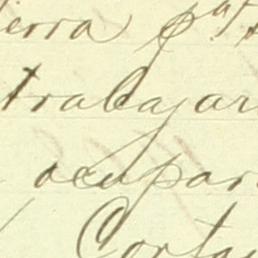 ierra pa
trabajar
ocupar
Corta